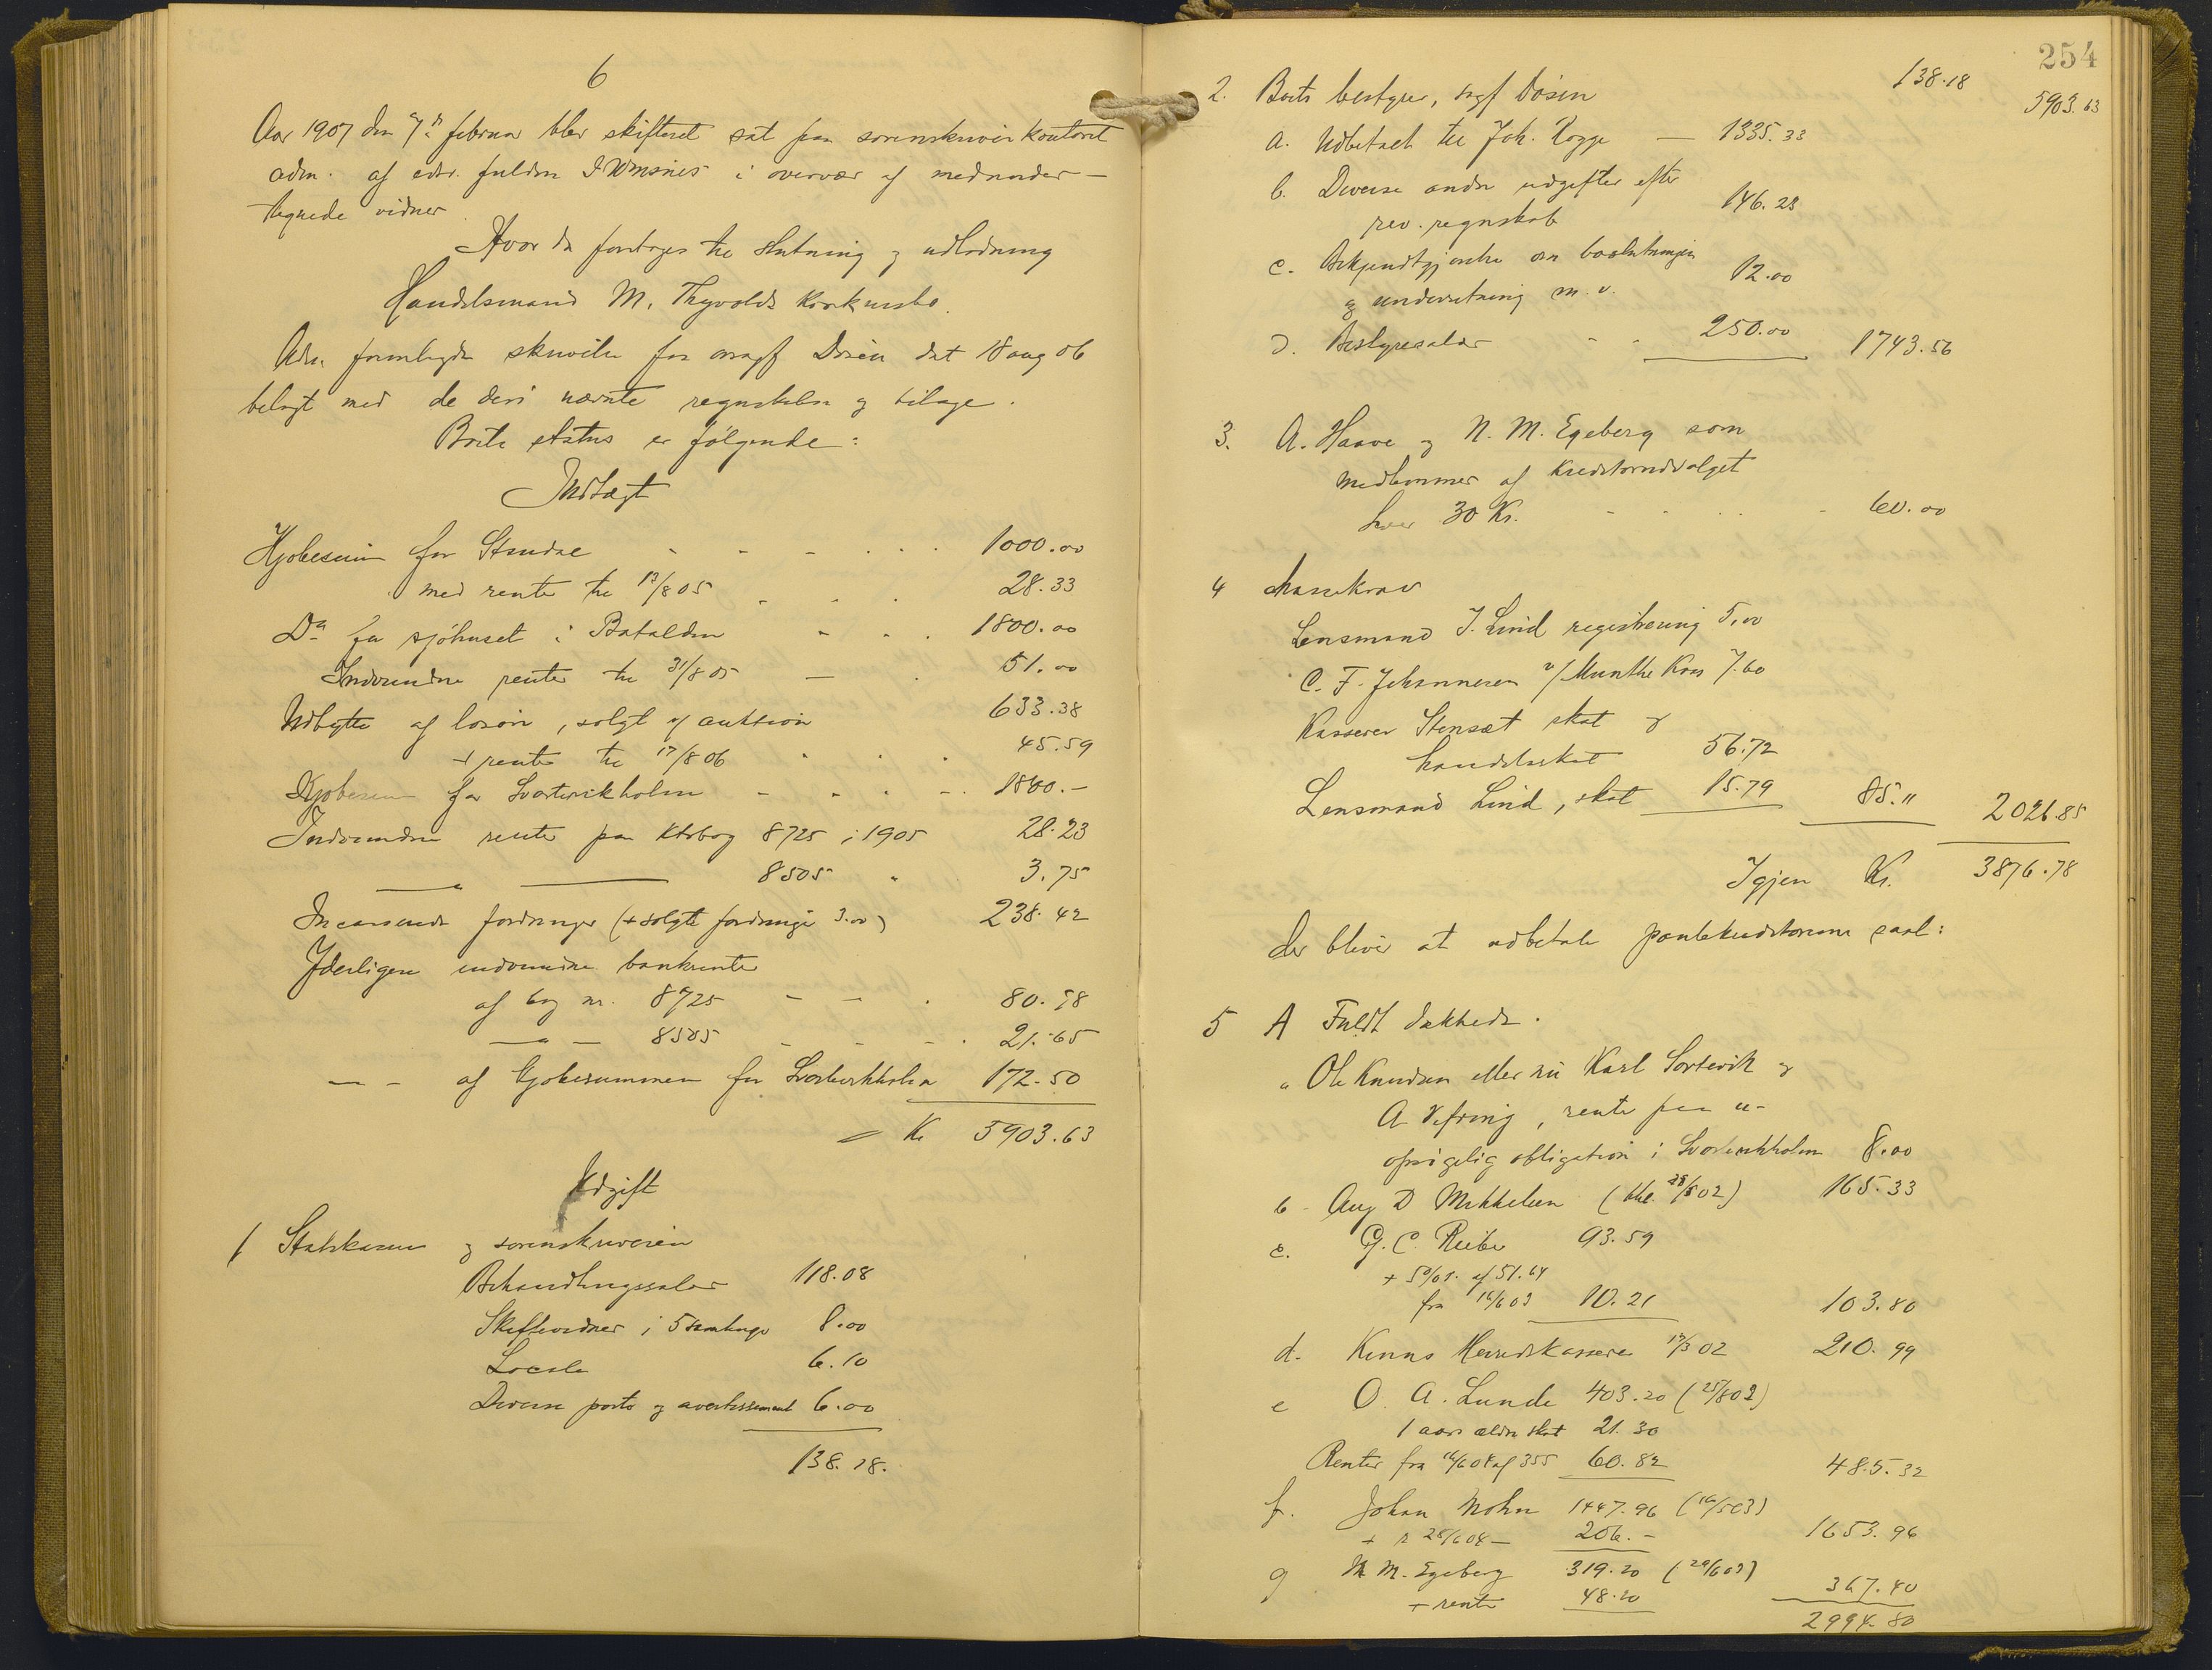 6
Aar 1907 den 7de februar blev skifteret sat paa sorenskriverkontoret
adm. af edsv. fuldm. i overvær af medunder-
tegnede vidner.
Hvor da foretoges til slutning og udlodning
Handelsmand M. Thyvolds konkursbo.
Adm. fremlagde skrivelse fra Døsen dat 18 aug 06
belagt med de deri nævnte regnskaber og bilage.
Boets status er følgende:
Indtægt
Kjøbesum for Strudal - - - . . . 1000.00
med rente til 17/8 05 - - . 28.33
Do for sjøhuset i Batalden - . . 1800.00
Indvundne renter til 31/8 05 - . 51.00
Udbytte af løsøre, solgt v auktion 633.38
+ renter til 17/8 06 . . . 45.59
Kjøbesum for Svartevikholm - . . - 1800.-
Indvundne renter paa ktrbog 8725 i 1905 28.23
8505 " 3.75
Incasserede fordringer (+ solgte fordringer 3.00) 238.42
Yderligere indvundne bankrenter
af bog nr. 8725 - - . 80.78
— " — 8505 - - - . 21.65
— - af kjøbesummen for Svartevikholm 172.50
= Kr 5903.63
Udgift
1 Statskassen og sorenskriveren
Behandlingssalær 118.08
Skiftevidner i 5 samlinger 8.00
Locale 6.10
Diverse porto og avertissement 6.00
138.18.
254
138.18
5903.63
2. Boets bestyrer, sagf Døsen
a. Udbetalt til Joh. Rogge — 1335.33
b. Diverse andre udgifter efter
rev. regnskab 146.23
c. Bekjendtgjørelse om boslutningen
og underretning m.v. 12.00
d. Bestyrersalær - - 250.00 1743.56
3. A. Haave og N. M. Egeberg som
medlemmer af Kreditorudvalget
hver 30 Kr. - - . . - 60.00
4 Massekrav
Lensmand J. Lind registrering 5,00
C. F. Johannesen v/ Munthe Kaas 7.60
Kasserer Stensæt skat og
handelsskat 56.72
Lensmand Lind, skat 15.79 85." 2026.85
Igjen Kr. 3876.78
Der bliver at udbetale pantekreditorerne saal:
5 A Fuldt dækkede.
a Ole Knudsen eller nu Karl Sortevik og
A Vefring, rente paa u-
opsigelig obligation i Svartevikholm 8.00
b - Aug D Mikkelsen (thl. 28/8 02) 165.33
c. G. C. Rieber 93.59
+ 5% r. af 51.64
fra 16/6 03 10.21 103.80
d. Kinns Herredskasserer 17/3 02 210.99
e O. A. Lunde 403.20 (25/8 02)
1 aars ældre skat 21.30
Renter fra 16/6 04 af 355 60.82 485.32
f. Johan Mohn 1447.96 (16/5 03)
+ r 28/6 04 - 206.- 1653.96
g N. M. Egeberg 319.20 (29/6 03)
+ rente 48.20 367.40
2994.80